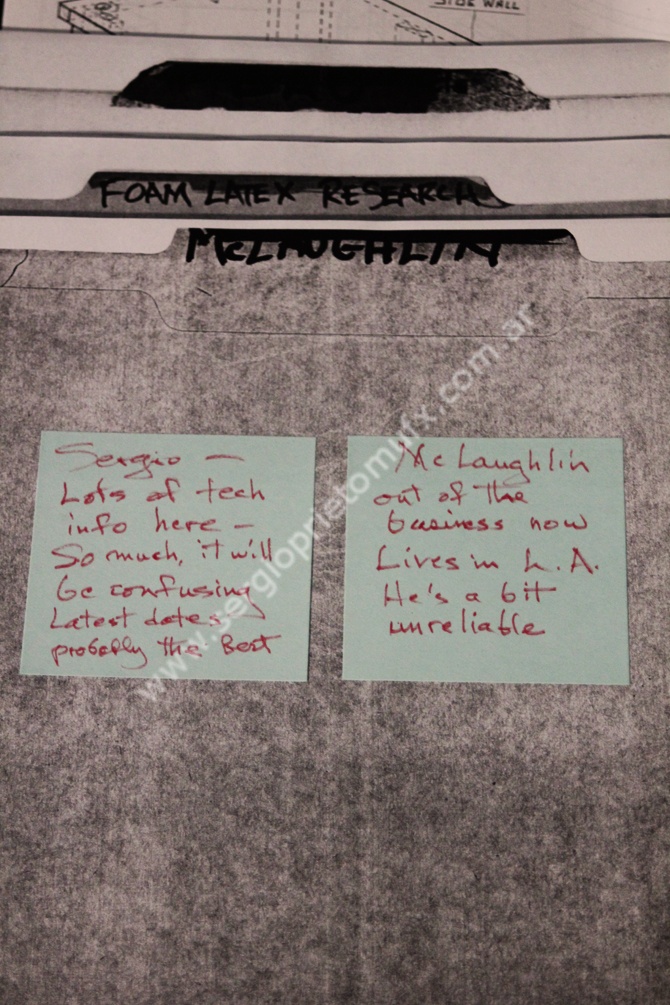 SIDE WALL
FOAM LATEX RESEARCH
McLAUGHLIN
Sergio —
Lots of tech
info here —
So much, it will
be confusing
Latest dates
probably the Best
McLaughlin
out of the
business now
Lives in L.A.
He's a bit
unreliable
www.sergioprietomufx.com.ar